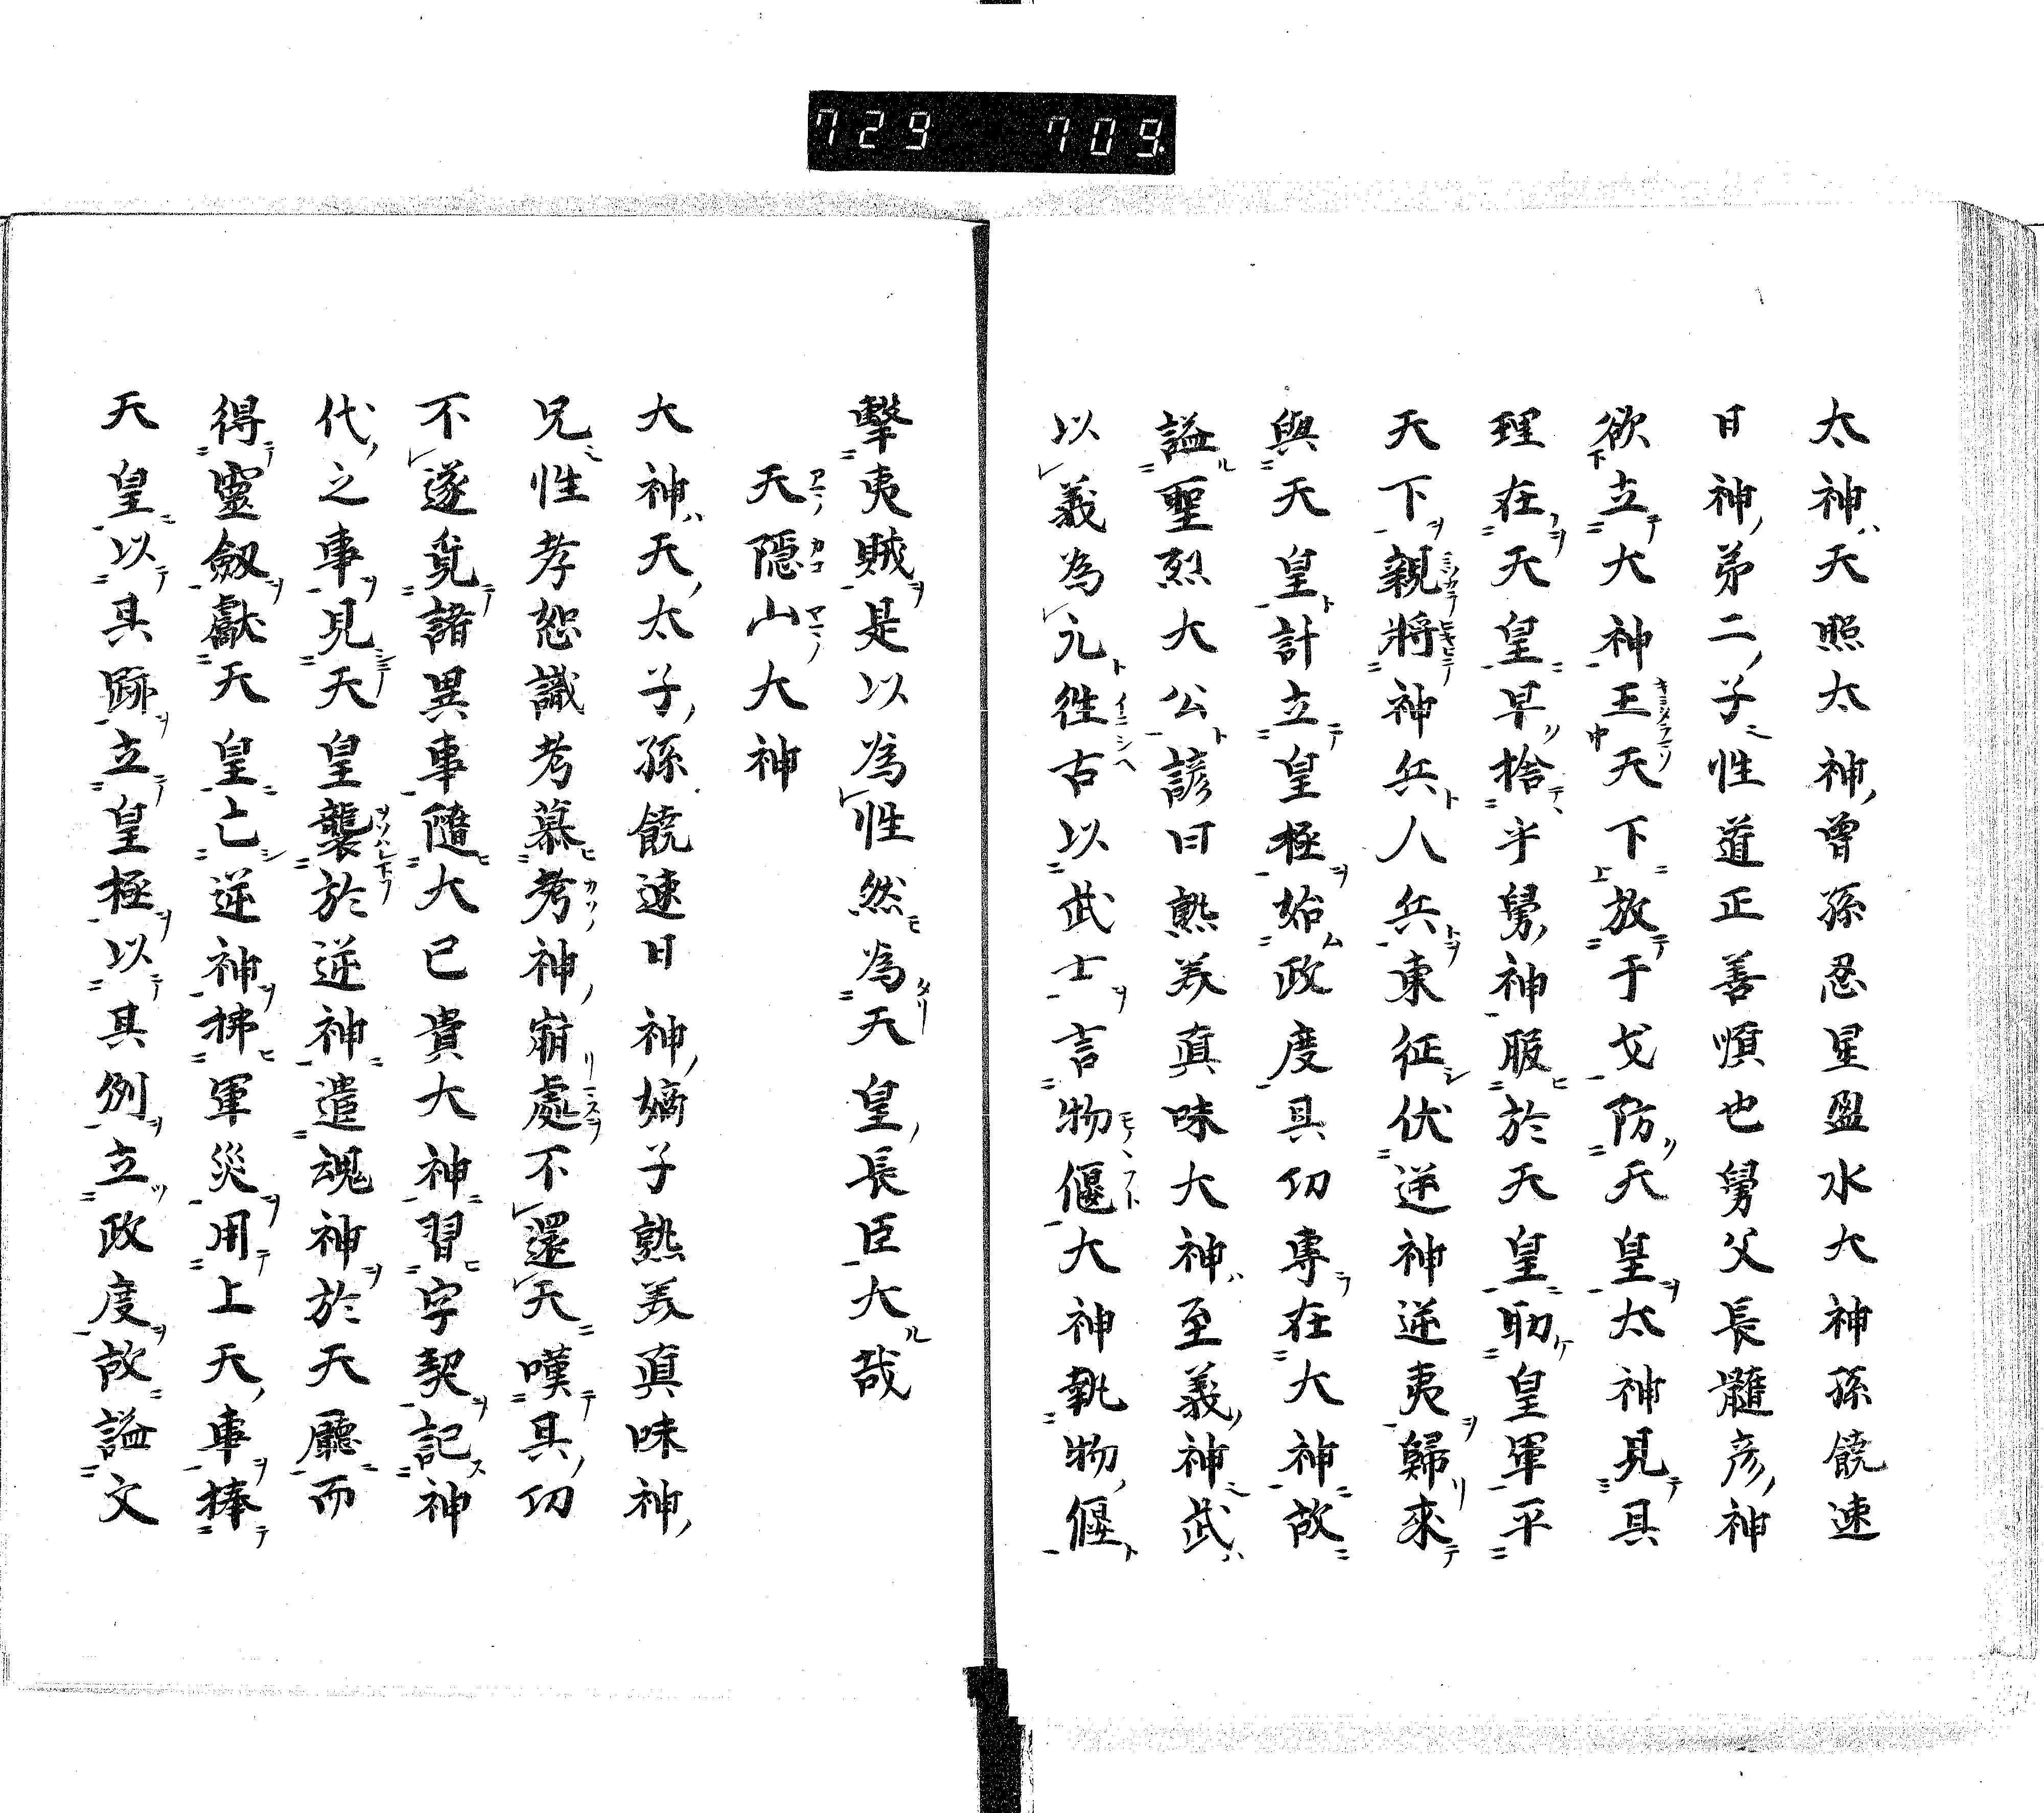 729 709.
太神天照太神曾孫忍星盈水大神孫饒速
日神弟二子性道正善順也舅父長髓彦神
欲立大神王天下放于戈防天皇太神見其
理在天皇早捨乎舅神服於天皇助皇軍平
天下親將神兵人兵東征伏逆神逆夷歸來
與天皇計立皇極始政度其功專在大神故
謚聖烈大公諺曰熟美真味大神至義神武
以義為元徃古以武士言物偃大神執物偃
擊夷賊是以為性然為天皇長臣大哉
天隱山大神
大神天太子孫饒速日神嫡子熟美真味神
兄性孝恕識考慕考神崩處不還天嘆其功
不遂覓諸異事隨大己貴大神習字契記神
代之事見天皇襲於逆神遣魂神於天廳而
得靈劔獻天皇亡逆神拂軍災用上天車捧
天皇以其跡立皇極以其例立政度故謚文